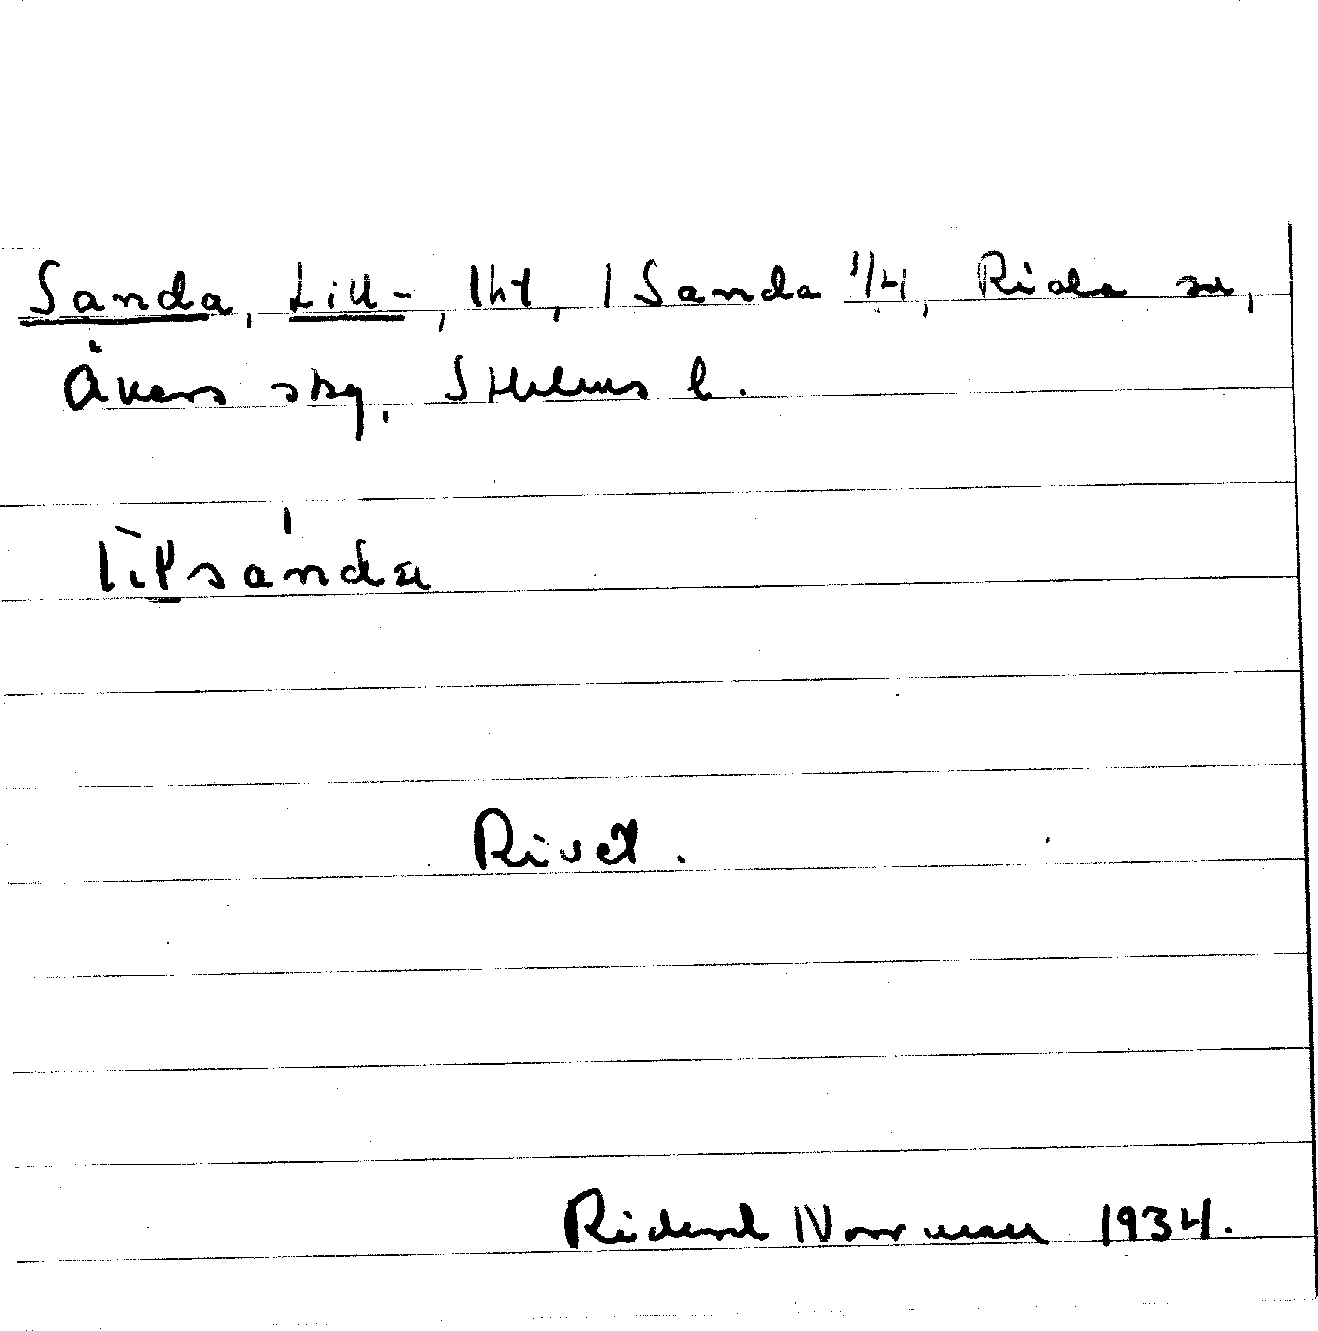 Sanda, Lill-, lht, 1 Sanda 1/4, Riala sn,
Åkers skg, Sthlms l.
lìlsanda
Rivet.
Rickard Norrman 1934.